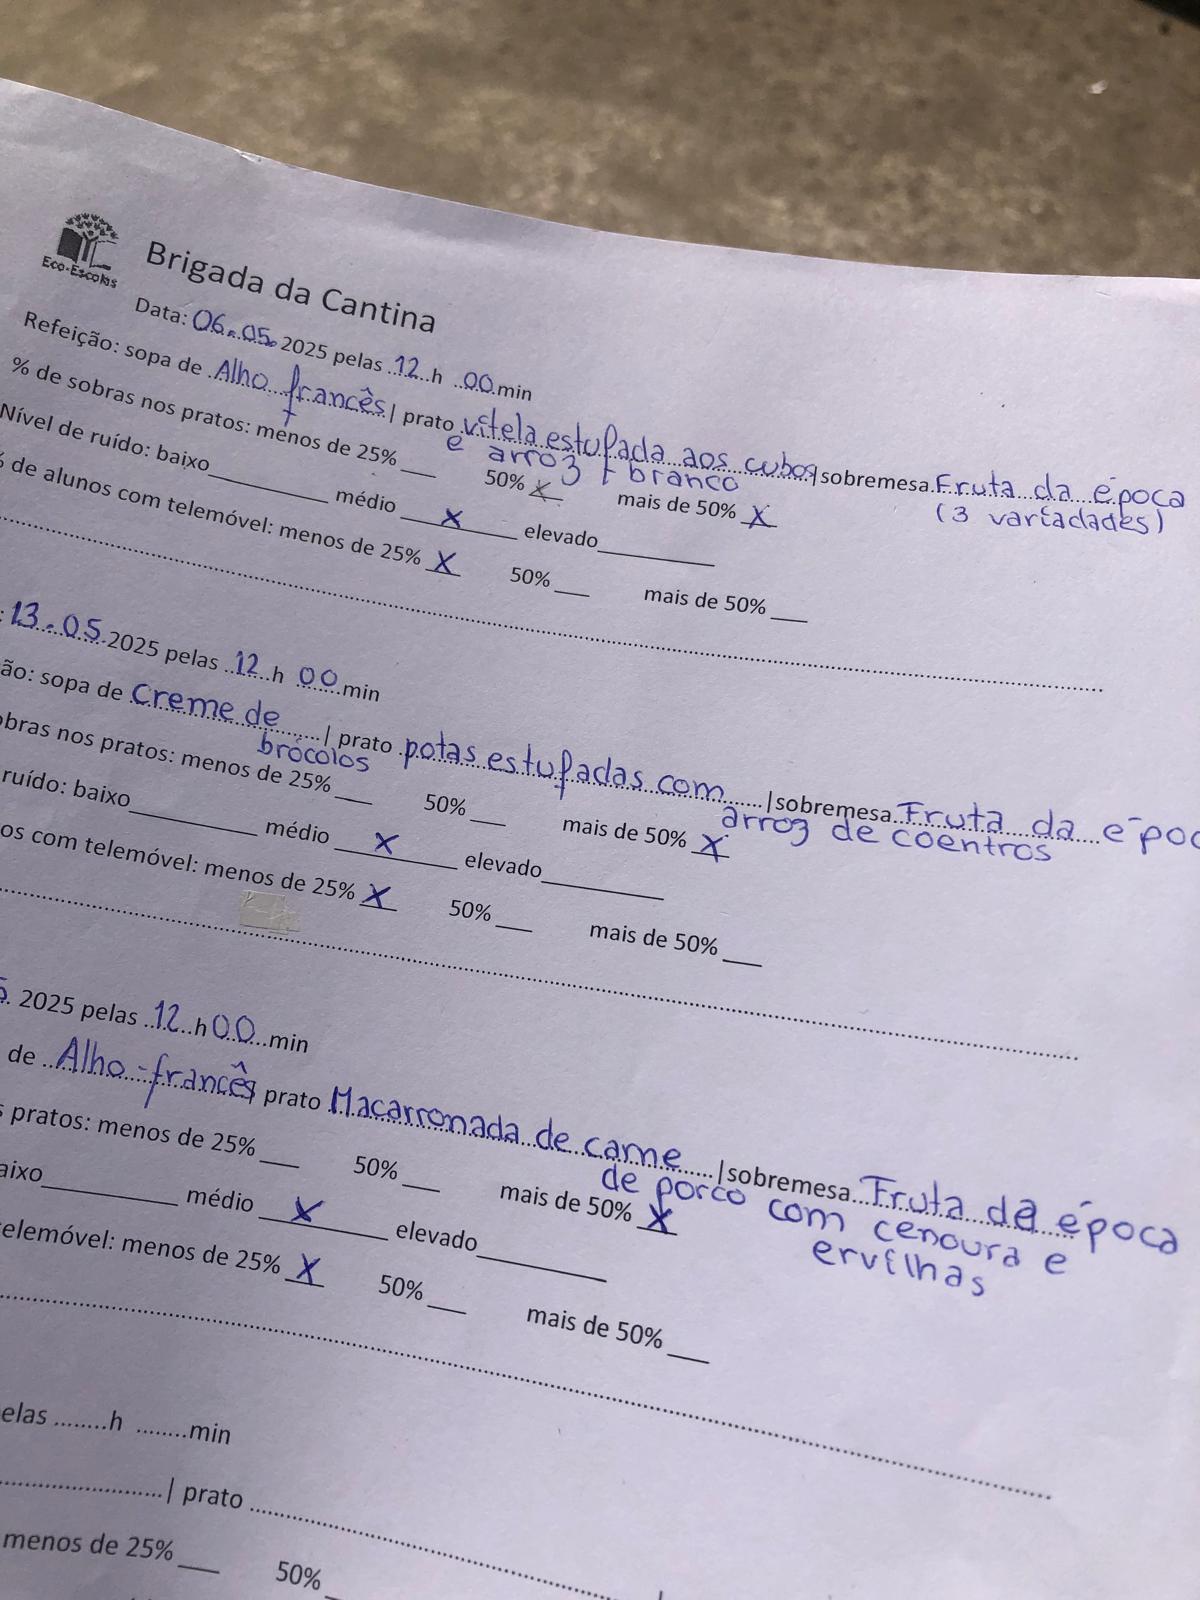 Eco-Escolas
Brigada da Cantina
Data: 06.05.2025 pelas 12 h 00 min
Refeição: sopa de Alho francês | prato vitela estufada aos cubos | sobremesa Fruta da época
e arroz branco (3 variadades)
% de sobras nos pratos: menos de 25% ___ 50% X mais de 50% X
Nível de ruído: baixo ___ médio X elevado ___
de alunos com telemóvel: menos de 25% X 50% ___ mais de 50% ___
13.05.2025 pelas 12 h 00 min
ão: sopa de Creme de | prato potas estufadas com | sobremesa Fruta da époc
brócolos arroz de coentros
obras nos pratos: menos de 25% ___ 50% ___ mais de 50% X
ruído: baixo ___ médio X elevado ___
os com telemóvel: menos de 25% X 50% ___ mais de 50% ___
5. 2025 pelas 12 h 00 min
de Alho-francês | prato Macarronada de carne | sobremesa Fruta da época
de porco com cenoura e
ervilhas
s pratos: menos de 25% ___ 50% ___ mais de 50% X
aixo ___ médio X elevado ___
elemóvel: menos de 25% X 50% ___ mais de 50% ___
elas ........h ........min
| prato
menos de 25% ___ 50% ___